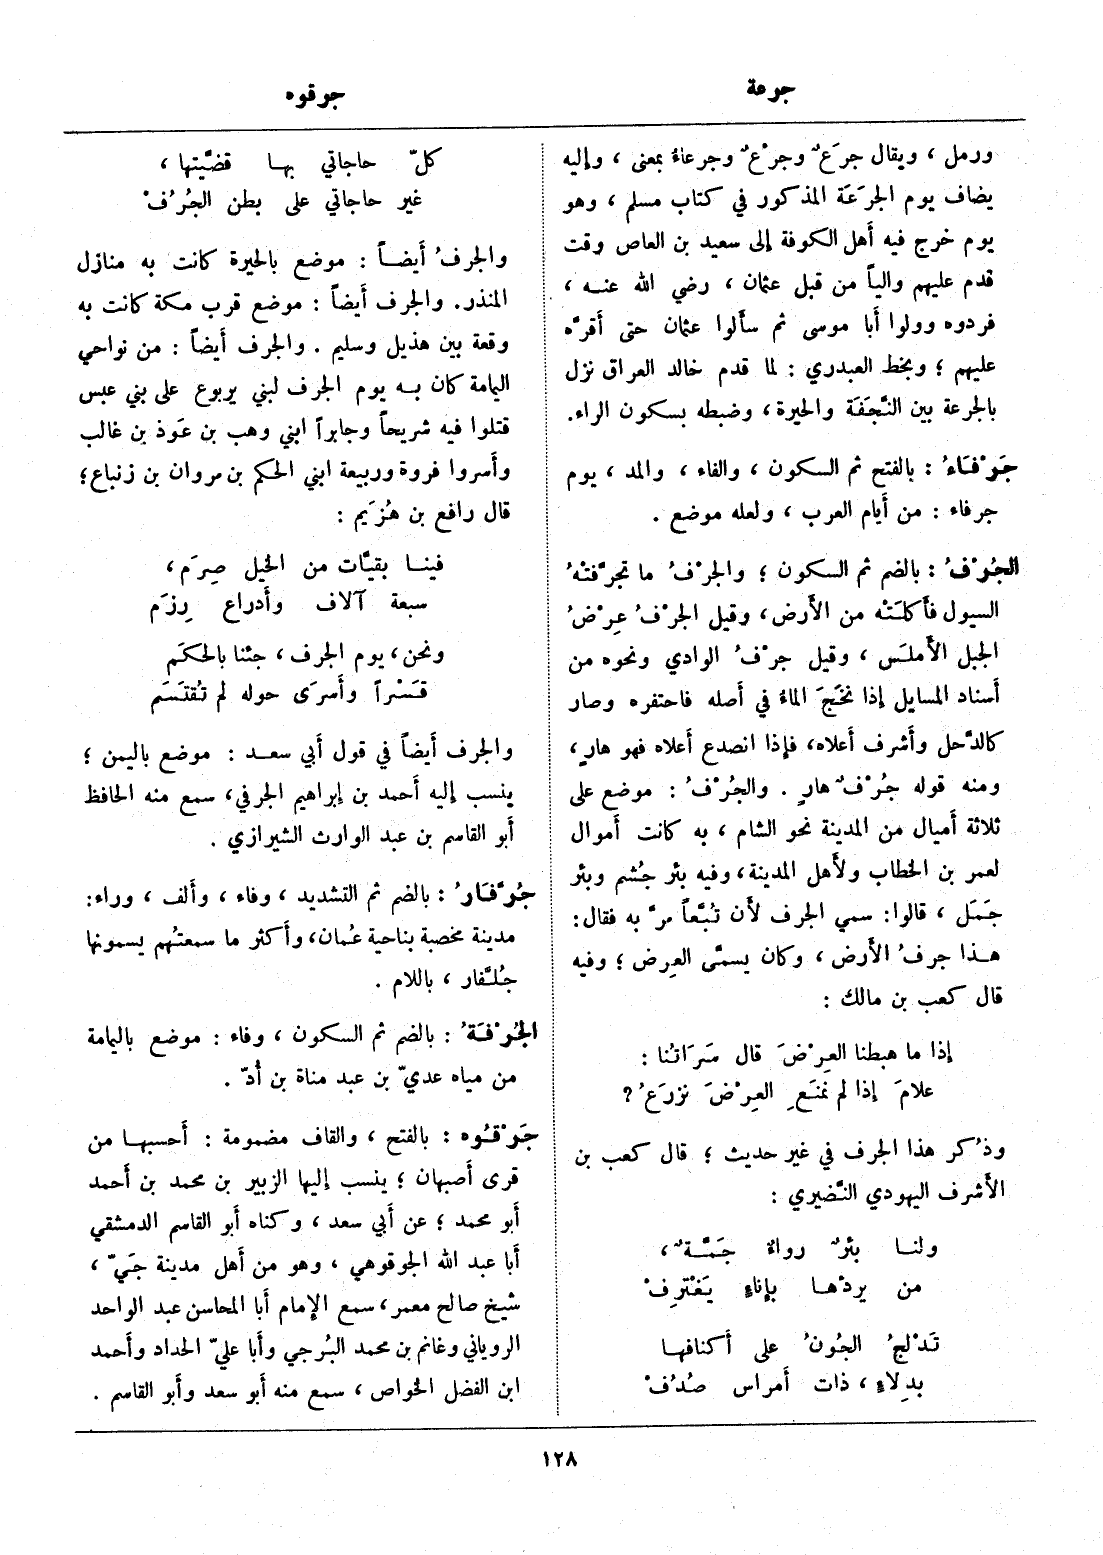 جرعة
جرقوه
ورمل ، ويقال جرَعٌ وجرْعٌ وجرعاءُ بمعنى ، وإليه
يضاف يوم الجرَعَة المذكور في كتاب مسلم ، وهو
يوم خرج فيه أهل الكوفة إلى سعيد بن العاص وقت
قدم عليهم والياً من قبل عثمان ، رضي الله عنه ،
فردوه وولوا أبا موسى ثم سألوا عثمان حتى أقرَّه
عليهم ؛ وبخط العبدري : لما قدم خالد العراق نزل
بالجرعة بين النَّجَفَة والحيرة ، وضبطه بسكون الراء.
جَرْفَاءُ : بالفتح ثم السكون ، والفاء ، والمد ، يوم
جرفاء : من أيام العرب ، ولعله موضع .
الجُرْفُ : بالضم ثم السكون ؛ والجرْفُ ما تجرَّفَتْهُ
السيول فأكلَتْه من الأرض ، وقيل الجرْفُ عِرْضُ
الجبل الأملَس ، وقيل جرْفُ الوادي ونحوه من
أسناد المسايل إذا نخَجَ الماءُ في أصله فاحتفره وصار
كالدَّحل وأشرف أعلاه، فإذا انصدع أعلاه فهو هارٍ،
ومنه قوله جُرْفٌ هارٍ . والجُرْفُ : موضع على
ثلاثة أميال من المدينة نحو الشام ، به كانت أموال
لعمر بن الخطاب ولأهل المدينة، وفيه بئر جُشم وبئر
جَمَل ، قالوا: سمي الجرف لأن تُبَّعاً مرَّ به فقال:
هذا جرفُ الأرض ، وكان يسمَّى العِرض ؛ وفيه
قال كعب بن مالك :
إذا ما هبطنا العِرْضَ قال سَرَاتُنا :
علامَ إذا لم نمنَعِ العِرْضَ نزرَعُ ؟
وذُكر هذا الجرف في غير حديث ؛ قال كعب بن
الأشرف اليهودي النَّضيري :
ولنا بئرٌ رواءٌ جَمَّةٌ ،
من يردْها بإناءٍ يَغْترِفْ
تَدْلجُ الجُونُ على أكنافها
بدِلاءٍ ، ذات أمراس صُدُفْ
كلّ حاجاتي بها قضَّيتها ،
غير حاجاتي على بطن الجُرُفْ
والجرفُ أيضاً : موضع بالحيرة كانت به منازل
المنذر. والجرف أيضاً : موضع قرب مكة كانت به
وقعة بين هذيل وسليم . والجرف أيضاً : من نواحي
اليمامة كان به يوم الجرف لبني يربوع على بني عبس
قتلوا فيه شريحاً وجابراً ابني وهب بن عَوذ بن غالب
وأسروا فروة وربيعة ابني الحكم بن مروان بن زنباع ؛
قال رافع بن هُزَيم :
فينا بقيَّات من الخيل صِرَم ،
سبعة آلاف وأدراع رِزَم
ونحن ، يوم الجرف ، جئنا بالحكَم
قَسْراً وأسرَى حوله لم تُقتَسَم
والجرف أيضاً في قول أبي سعد : موضع باليمن ؛
ينسب إليه أحمد بن إبراهيم الجرفي، سمع منه الحافظ
أبو القاسم بن عبد الوارث الشيرازي .
جُرَّفَارُ : بالضم ثم التشديد ، وفاء ، وألف ، وراء:
مدينة مخصبة بناحية عُمان، وأكثر ما سمعتُهم يسمونها
جُلَّفار ، باللام .
الجُرْفَةُ : بالضم ثم السكون ، وفاء : موضع باليمامة
من مياه عديّ بن عبد مناة بن أُدّ .
جَرْقُوه : بالفتح ، والقاف مضمومة : أحسبها من
قرى أصبهان ؛ ينسب إليها الزبير بن محمد بن أحمد
أبو محمد ؛ عن أبي سعد ، وكناه أبو القاسم الدمشقي
أبا عبد الله الجرقوهي ، وهو من أهل مدينة جَيّ ،
شيخ صالح معمر، سمع الإمام أبا المحاسن عبد الواحد
الروياني وغانم بن محمد البُرجي وأبا عليّ الحداد وأحمد
ابن الفضل الخواص ، سمع منه أبو سعد وأبو القاسم .
١٢٨